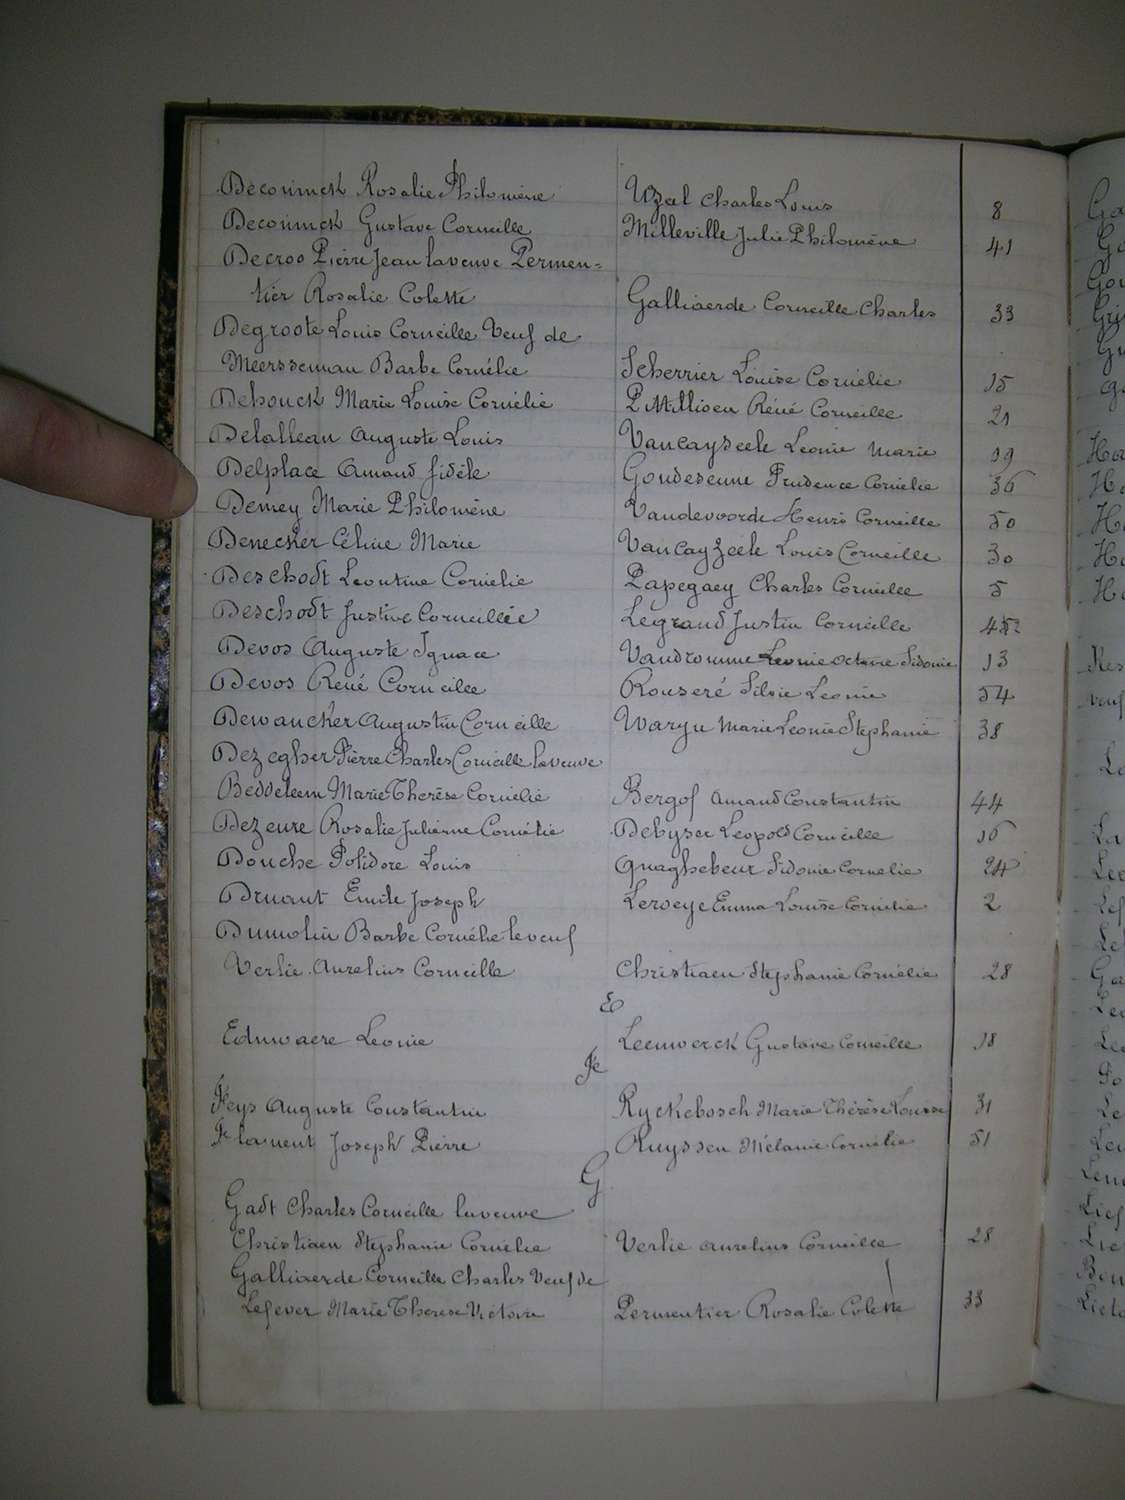 Deconinck Rosalie Philomène Uzal Charles Louis 8
Deconinck Gustave Corneille Milleville Julie Philomène 41
Decroo Pierre Jean la veuve Permen=
tier Rosalie Colette Galliaerde Corneille Charles 33
Degroote Louis Corneille Veuf de
Meersseman Barbe Cornélie Scherrier Louise Cornélie 15
Dehouck Marie Louise Cornélie Pittillioen Réné Corneille 21
Delalleau Auguste Louis Vancayseele Leonie Marie 19
Delplace Amand fidèle Goudeseune Prudence Cornélie 36
Demey Marie Philomène Vandevoorde Henri Corneille 50
Denecker Céline Marie Vancayzeele Louis Corneille 30
Deschodt Leontine Cornélie Papegaey Charles Corneille 5
Deschodt Justine Corneillée Legrand Justin Corneille
Devos Auguste Ignace Vandromme Leonie Octavie Sidonie 13
Devos René Corneille Rouseré Silvie Leonie 54
Dewancker Augustin Corneille Waryn Marie Leonie Stephanie 38
Dezegher Pierre Charles Corneille la veuve
Beddeleem Marie Therèse Cornélie Bergof Amand Constantin 44
Dezeure Rosalie Julienne Cornélie Debyser Leopold Corneille 16
Douche Polidore Louis Quaghebeur Sidonie Cornelie 24
Druant Emile Joseph Leroeye Emma Louise Cornélie 2
Dumolin Barbe Cornélie le veuf
Verlie Aurelius Corneille Christiaen Stephanie Cornélie 28
E
Edmwaere Leonie Leenwerck Gustave Corneille 18
F
Feys Auguste Constantin Ryckebosch Marie Thérèse Louise 31
Flament Joseph Pierre Ruyssen Mélanie Cornélie 51
G
Gadt Charles Corneille la veuve
Christiaen Stephanie Cornélie Verlie Aurelius Corneille 28
Galliaerde Corneille Charles Veuf de
Lefever Marie Therese Victoire Permentier Rosalie Colette 33